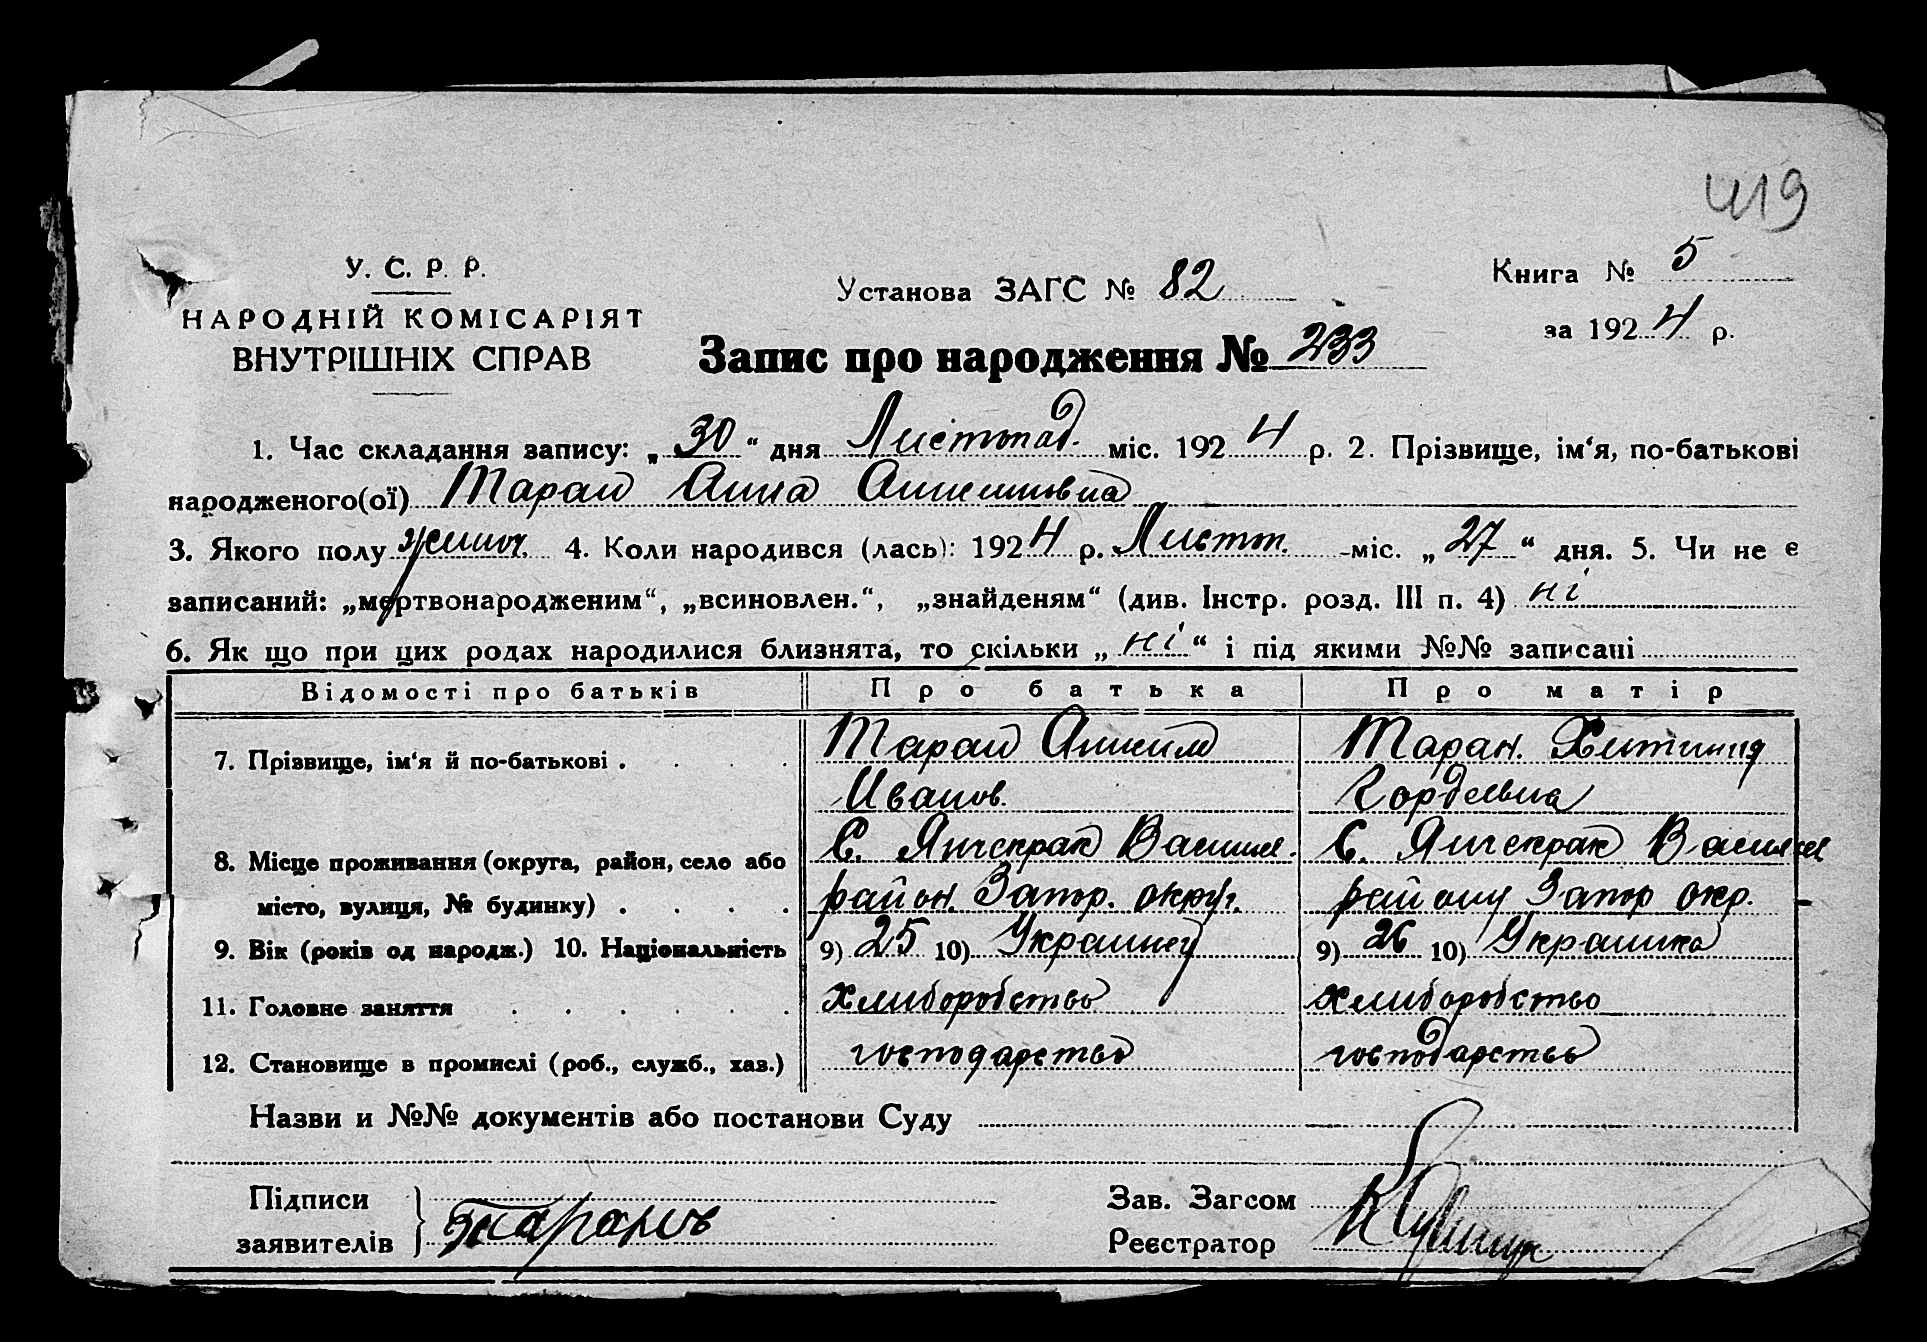 419
У. С. Р. Р.
НАРОДНІЙ КОМІСАРІЯТ
ВНУТРІШНІХ СПРАВ
Установа ЗАГС № 82
Книга № 5
за 1924 р.
Запис про народження № 233
1. Час складання запису: „30“ дня Листопад. міс. 1924 р. 2. Прізвище, ім‘я, по-батькові
народженого(ої) Таран Анна
3. Якого полу жиноч. 4. Коли народився (лась): 1924 р. Листоп. -міс. „27“ дня. 5. Чи не є
записаний: „мертвонародженим“, „всиновлен.“, „знайденям“ (див. Інстр. розд. III п. 4) ні
6. Як що при цих родах народилися близнята, то скільки „ні“ і під якими №№ записані
Відомості про батьків Про батька Про матір
7. Прізвище, ім‘я й по-батькові . Таран Таран.
Иванов. Гордеевна
8. Місце проживання (округа, район, село або С. Янчекрак Васил. С. Янчекрак
місто, вулиця, № будинку) . район. Запор. округ. району Запор окр.
9. Вік (років од народж.) 10. Національність 9) 25 10) Украинец 9) 26 10) Украинка
11. Головне заняття хлиборобство хлиборобство
12. Становище в промислі (роб., служб., хаз.) господарство господарство
Назви и №№ документів або постанови Суду
Підписи
заявителів
Зав. Загсом
Реєстратор